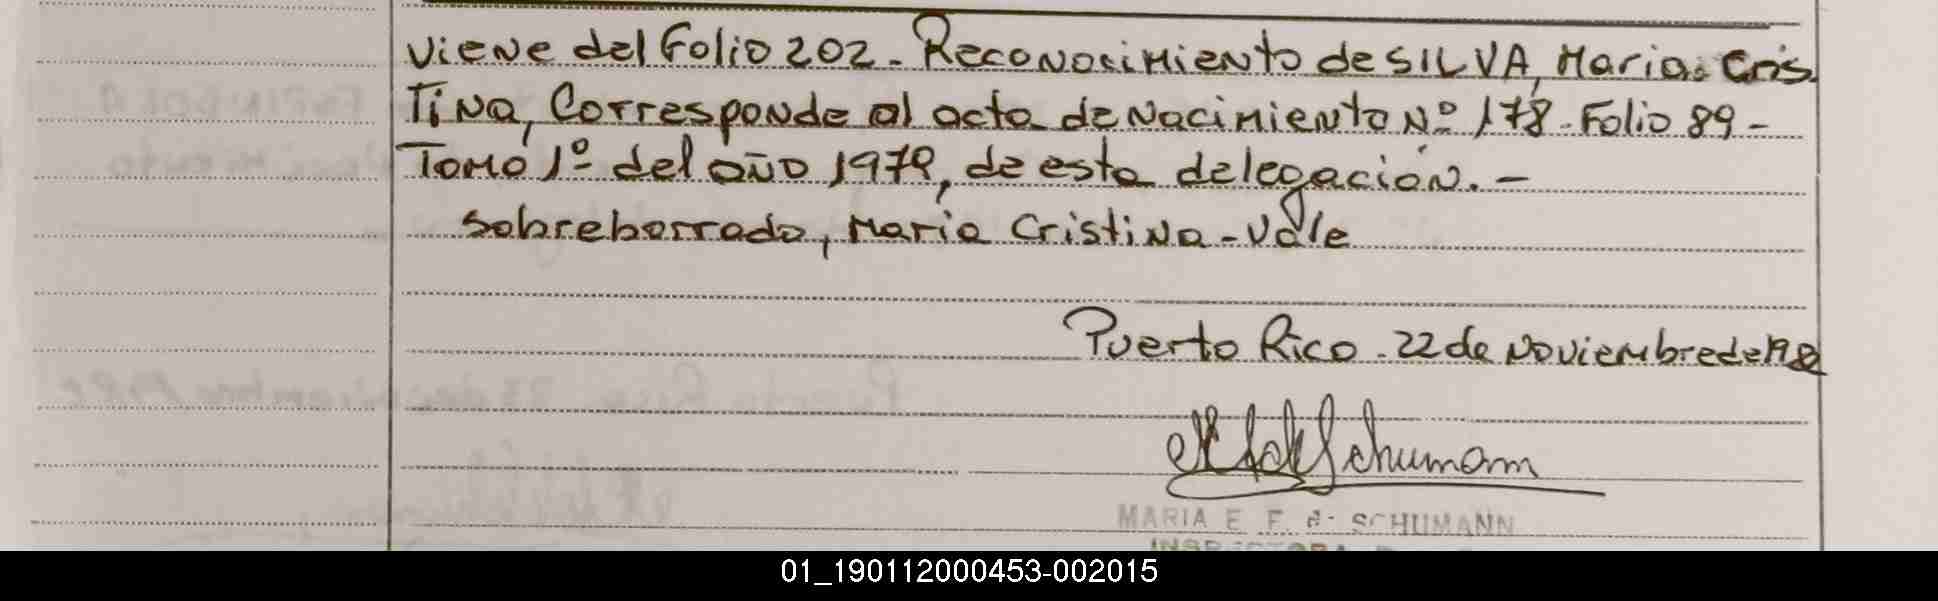 viene del Folio 202 - Reconocimiento de SILVA, Maria Cris
Tina, Corresponde al acta de Nacimiento Nº 178 - Folio 89 -
Tomo 1º del año 1979, de esta delegación. -
sobreborrado, Maria Cristina - Vale
Puerto Rico - 22 de Noviembre de 198
Schumann
MARIA E. F. de SCHUMANN
INSPECTORA
01_190112000453-002015